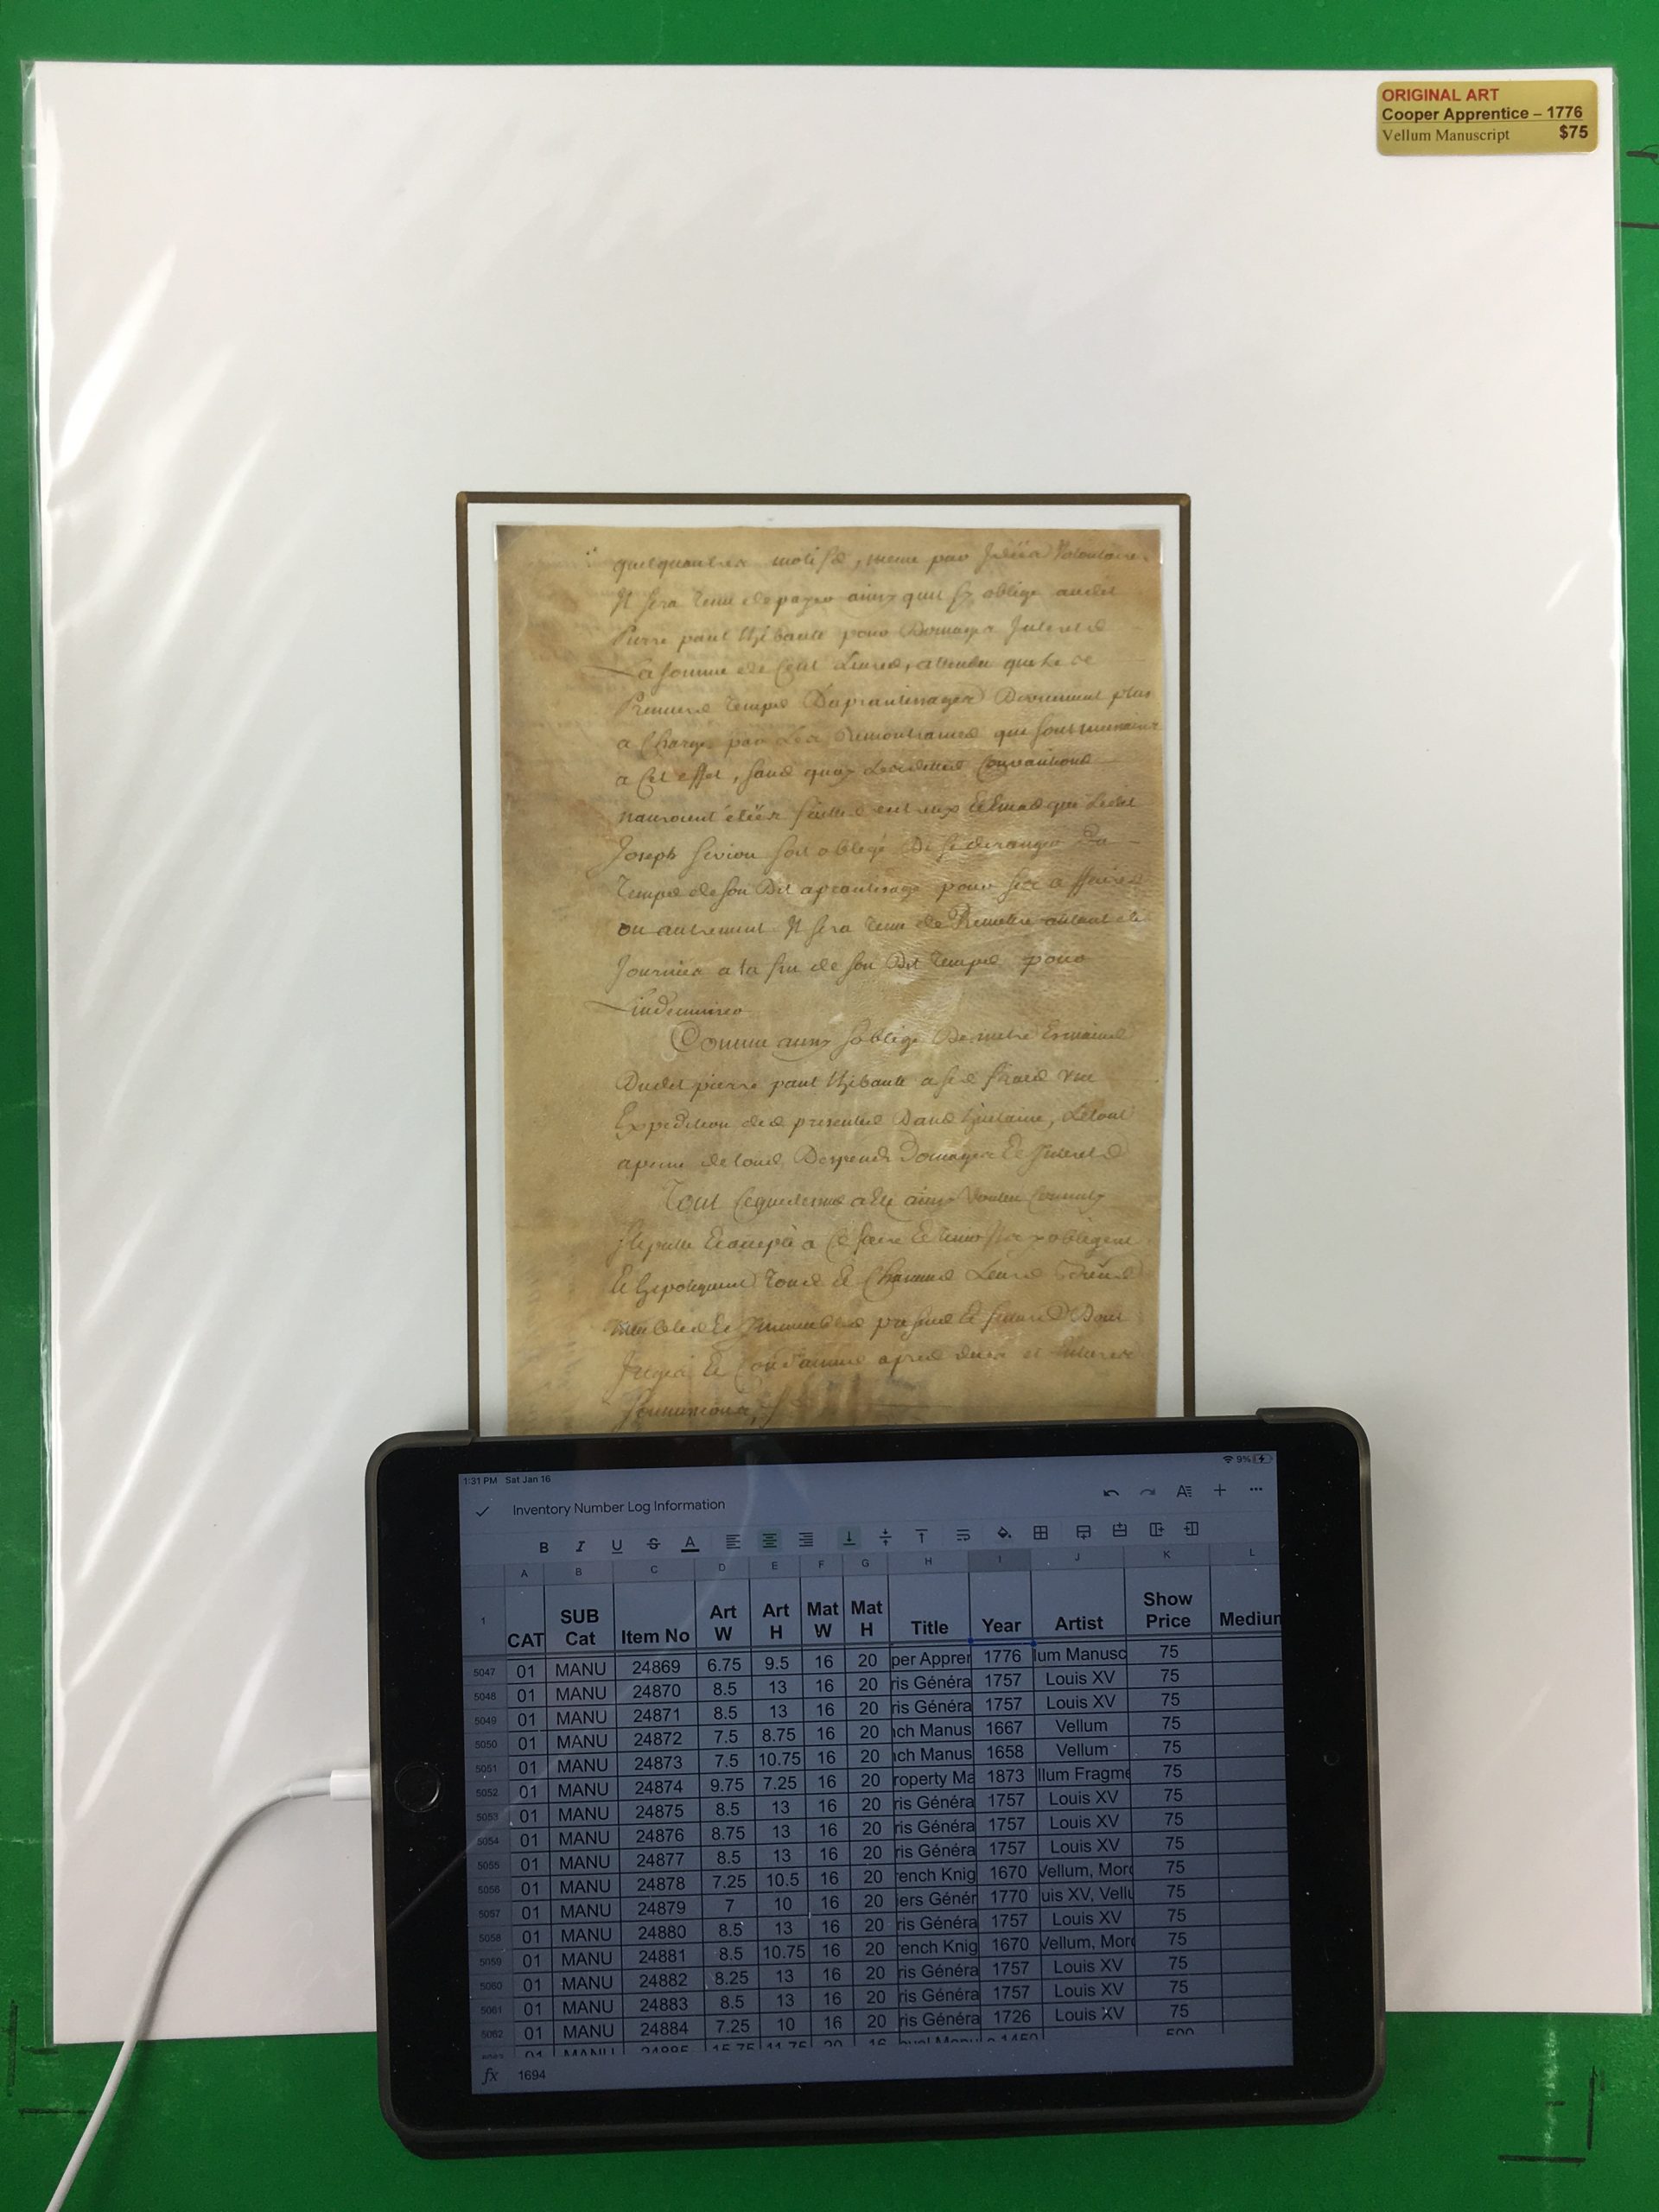 ORIGINAL ART
Cooper Apprentice – 1776
Vellum Manuscript $75
Il sera tenu de payer ainsy quil sy oblige audit
Pierre paul thibault pour Domages Interets
La somme de Cent Livres, attendu que
Premiers temps Daprantissages Deviennent plus
a Charge par Les Remontrances qui sont
a Cet effet, sans quoy Lesdittes Conventions
nauroient étées faittes entreux Et En cas que Ledit
Joseph soit obligé De se deranger Du
Temps de son Dit aprantissage pour ses affaires
ou autrement Il sera tenu de Remettre autant de
Journées a la fin de son Dit Temps pour
Lindemniser
Comme aussy soblige De mettre Es mains
Dudit pierre paul thibault a ses fraid une
Expedition des presentes Dans huitaine, Letout
apeine de tous Despends Domages Et Interets
Tout Cequedessus a Eté ainsy Voulu Convenu
Stipullé Et accepté a Ce faire Et
Et hypotequent Tous Et Chacuns Leurs Biens
meubles Et Immeubles presens Et futurs Dont
Jugés Et Condamnés apres
1:31 PM Sat Jan 16 9%
Inventory Number Log Information
B I U S A
A B C D E F G H I J K L
1 CAT SUB Cat Item No Art W Art H Mat W Mat H Title Year Artist Show Price Mediur
5047 01 MANU 24869 6.75 9.5 16 20 per Appren 1776 lum Manusc 75
5048 01 MANU 24870 8.5 13 16 20 ris Généra 1757 Louis XV 75
5049 01 MANU 24871 8.5 13 16 20 ris Généra 1757 Louis XV 75
5050 01 MANU 24872 7.5 8.75 16 20 nch Manus 1667 Vellum 75
5051 01 MANU 24873 7.5 10.75 16 20 nch Manus 1658 Vellum 75
5052 01 MANU 24874 9.75 7.25 16 20 roperty Ma 1873 llum Fragme 75
5053 01 MANU 24875 8.5 13 16 20 ris Généra 1757 Louis XV 75
5054 01 MANU 24876 8.75 13 16 20 ris Généra 1757 Louis XV 75
5055 01 MANU 24877 8.5 13 16 20 ris Généra 1757 Louis XV 75
5056 01 MANU 24878 7.25 10.5 16 20 rench Knig 1670 Vellum, Mord 75
5057 01 MANU 24879 7 10 16 20 iers Génér 1770 uis XV, Vellu 75
5058 01 MANU 24880 8.5 13 16 20 ris Généra 1757 Louis XV 75
5059 01 MANU 24881 8.5 10.75 16 20 rench Knig 1670 Vellum, Mord 75
5060 01 MANU 24882 8.25 13 16 20 ris Généra 1757 Louis XV 75
5061 01 MANU 24883 8.5 13 16 20 ris Généra 1757 Louis XV 75
5062 01 MANU 24884 7.25 10 16 20 ris Généra 1726 Louis XV 75
01 MANU 24885 15.75 11.75 20 16 c 1450 500
fx 1694